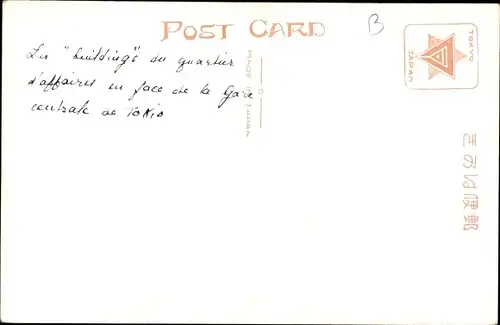 POST CARD
B
TOKYO
JAPAN
Les "buildings" du quartier
d'affaires en face de la Gare
centrale de Tokio
MADE IN JAPAN
きかは便郵